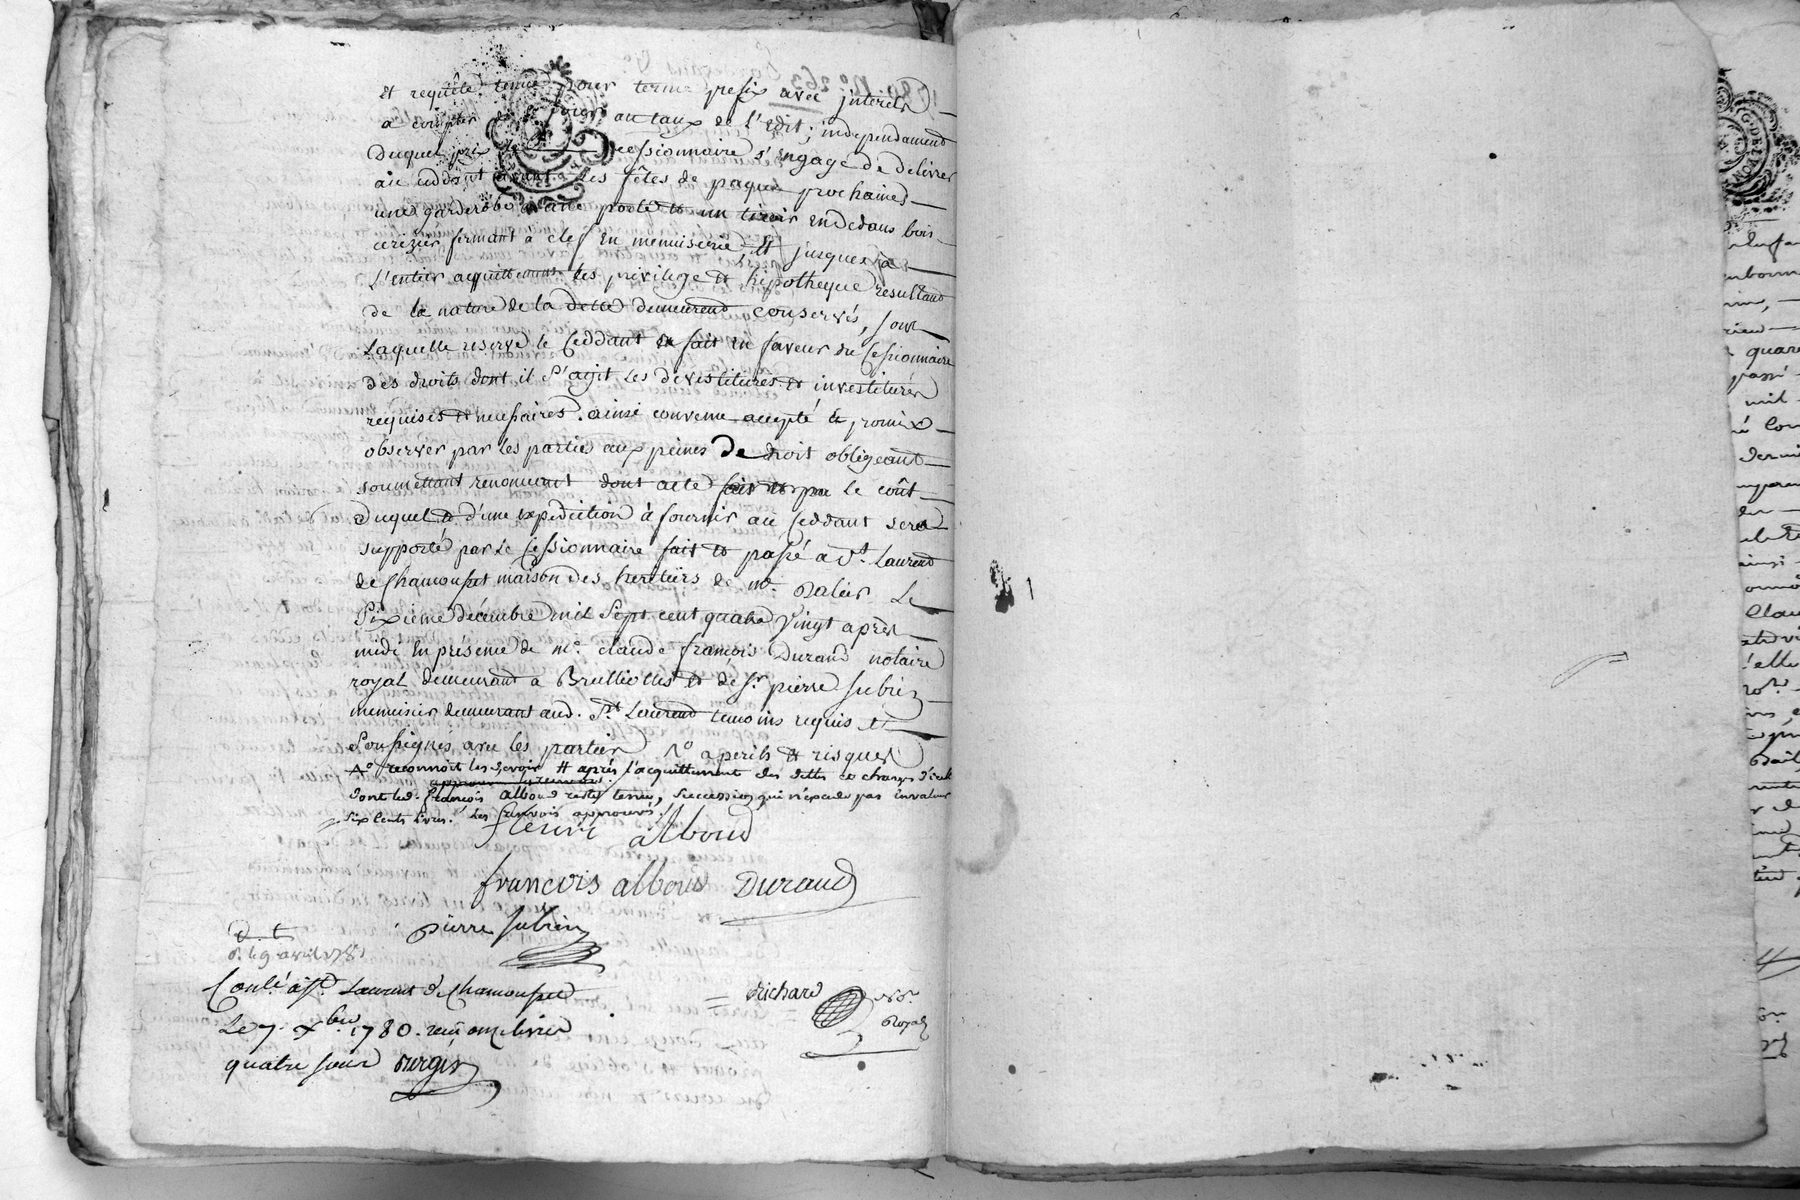 et requête tenue pour terme prefix avec interets
a compter de ce jour au taux de l'Edit; independament
duquel prix le cessionnaire s'engage de delivrer
au ceddant avant les fêtes de paques prochaines
une garderobe a une porte et un tiroir en dedans bois
cerizier fermant a clef en menuiserie et jusques a
l'entier acquittement les privilege et hipotheque resultand
de la nature de la dette demeurend conservés, sous
laquelle reserve le Ceddant a fait en faveur du Cessionnaire
des droits dont il s'agit les devestitures et investitures
requises et necessaires. ainsi convenu accepté et promis
observer par les parties aux peines de droit obligeant
soumettant renonceant dont acte fait et pa le coût
duquel et d'une expedition à fournir au Ceddant sera
supporté par le Cessionnaire fait et passé a St. Laurend
de Chamousset maison des heritiers de me. Paleir Le
Sixième décembre mil Sept cent quatre vingt après
midi en présence de me. claude françois Durand notaire
royal demeurand a Brullioles et de sr. pierre Subrin
menuisier demeurant aud. St. Laurend temoins requis et
Soussignés avec les parties
a perils et risques
reconnoit les devoir # après l'acquittement des dettes et charges d'icelle
dont led. françois alboud reste tenu, succession qui n'excede pas en valeur
six cents livres. Les renvois approuvés.
fleuri alboud
françois albous Durand
pierre Subrin
d. t
d. le 9 avril 1781
Conlé. à St. Laurent de Chamousset
Richard
Nore.
Royal
Le 7. Xbre 1780. reçu onze livres
quatre sous Burgis